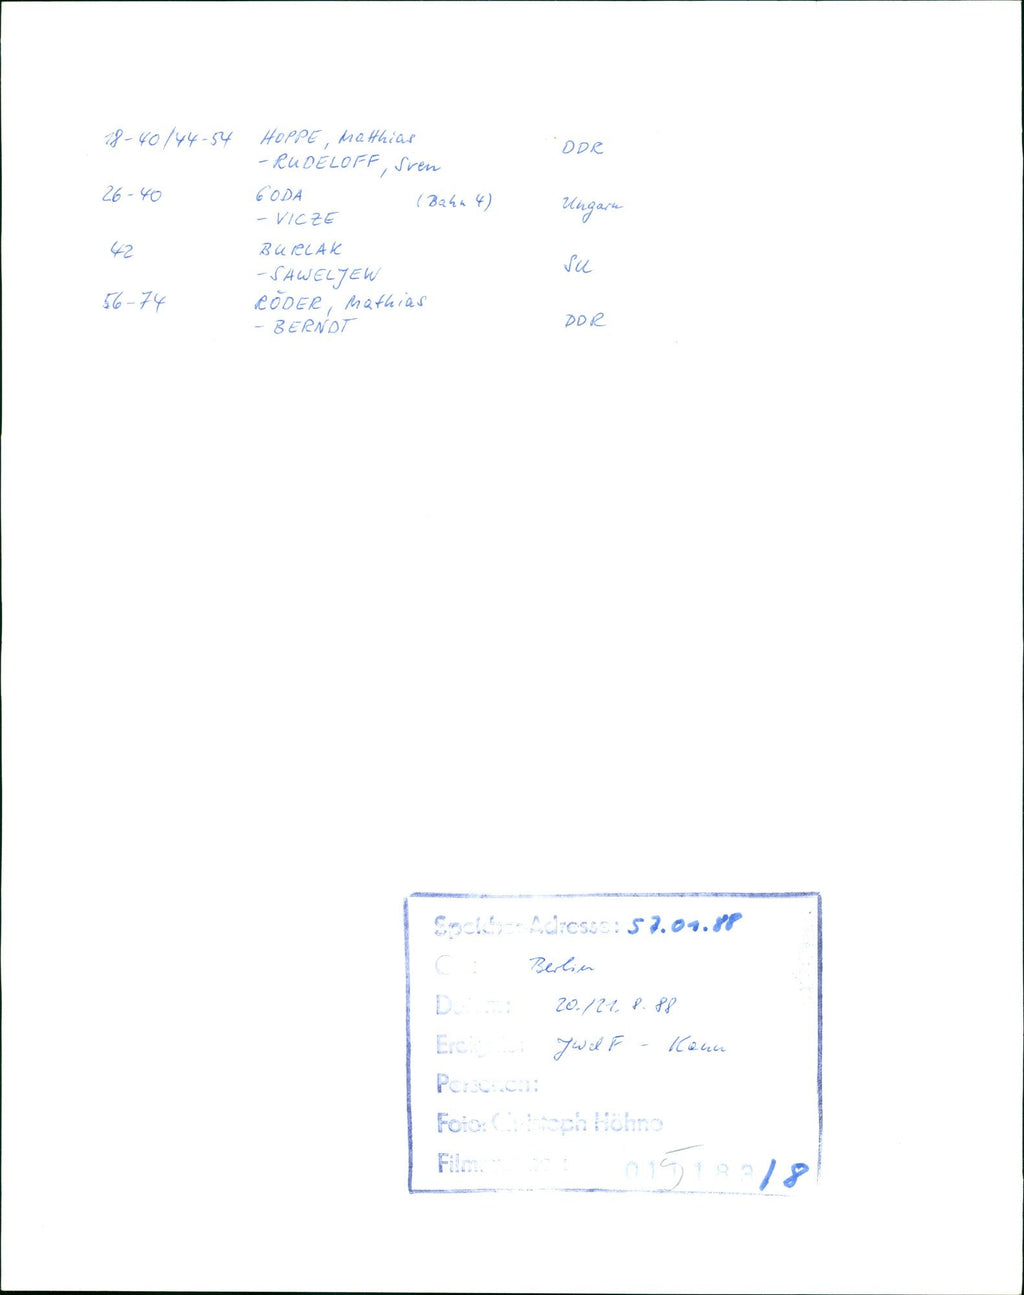 18-40/44-54 HOPPE, Matthias DDR
- RUDELOFF, Sven
26-40 GODA (Bahn 4) Ungarn
- VICZE
42 BURLAK
- SAWELJEW SU
56-74 RÖDER, Mathias
- BERNDT DDR
Speicher-Adresse: 57.01.88
Berlin
Datum: 20./21. 8. 88
Ereignis: JWdF - Kanu
Personen:
Foto: Christoph Höhne
015183/8